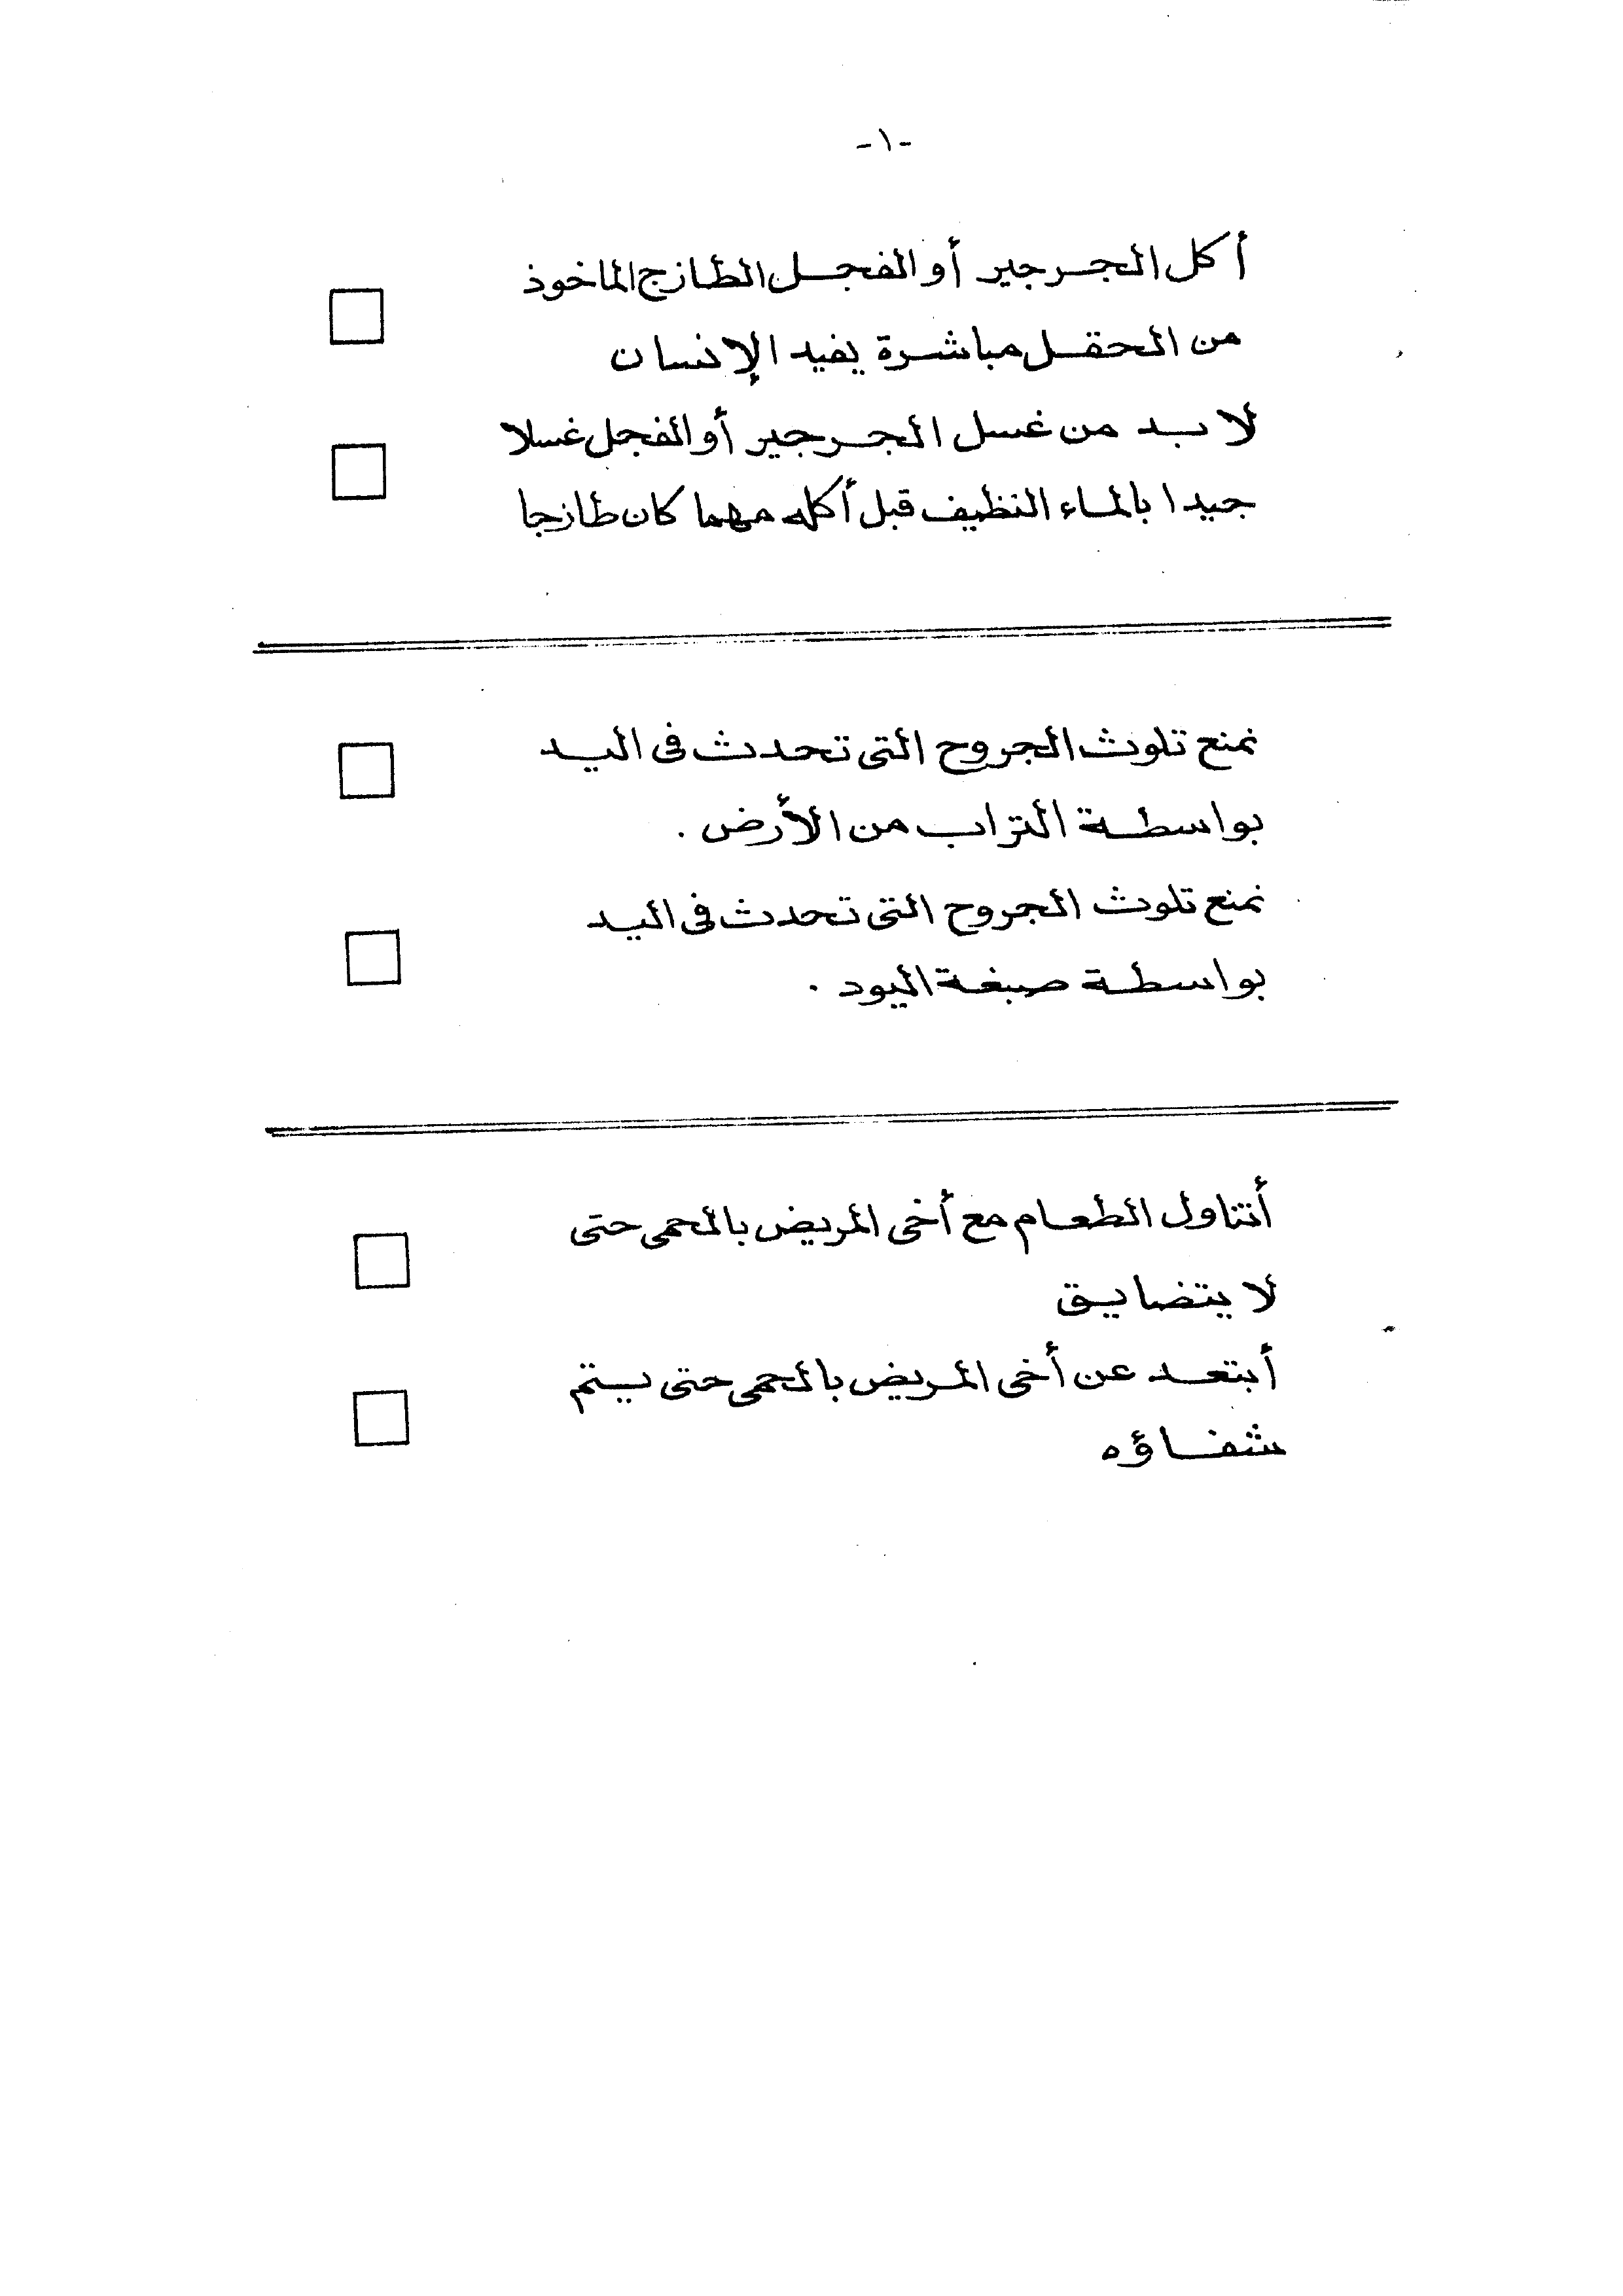 -١-
أكل الجرجير أو الفجل الطازج الماخوذ
من الحقل مباشرة يفيد الإنسان
لا بد من غسل الجرجير أو الفجل غسلا
جيدا بالماء النظيف قبل أكله مهما كان طازجا
نمنع تلوث الجروح التى تحدث فى اليد
بواسطة التراب من الأرض .
نمنع تلوث الجروح التى تحدث فى اليد
بواسطة صبغة اليود .
أتناول الطعام مع أخى المريض بالحمى حتى
لا يتضايق
أبتعد عن أخى المريض بالحمى حتى يتم
شفاؤه